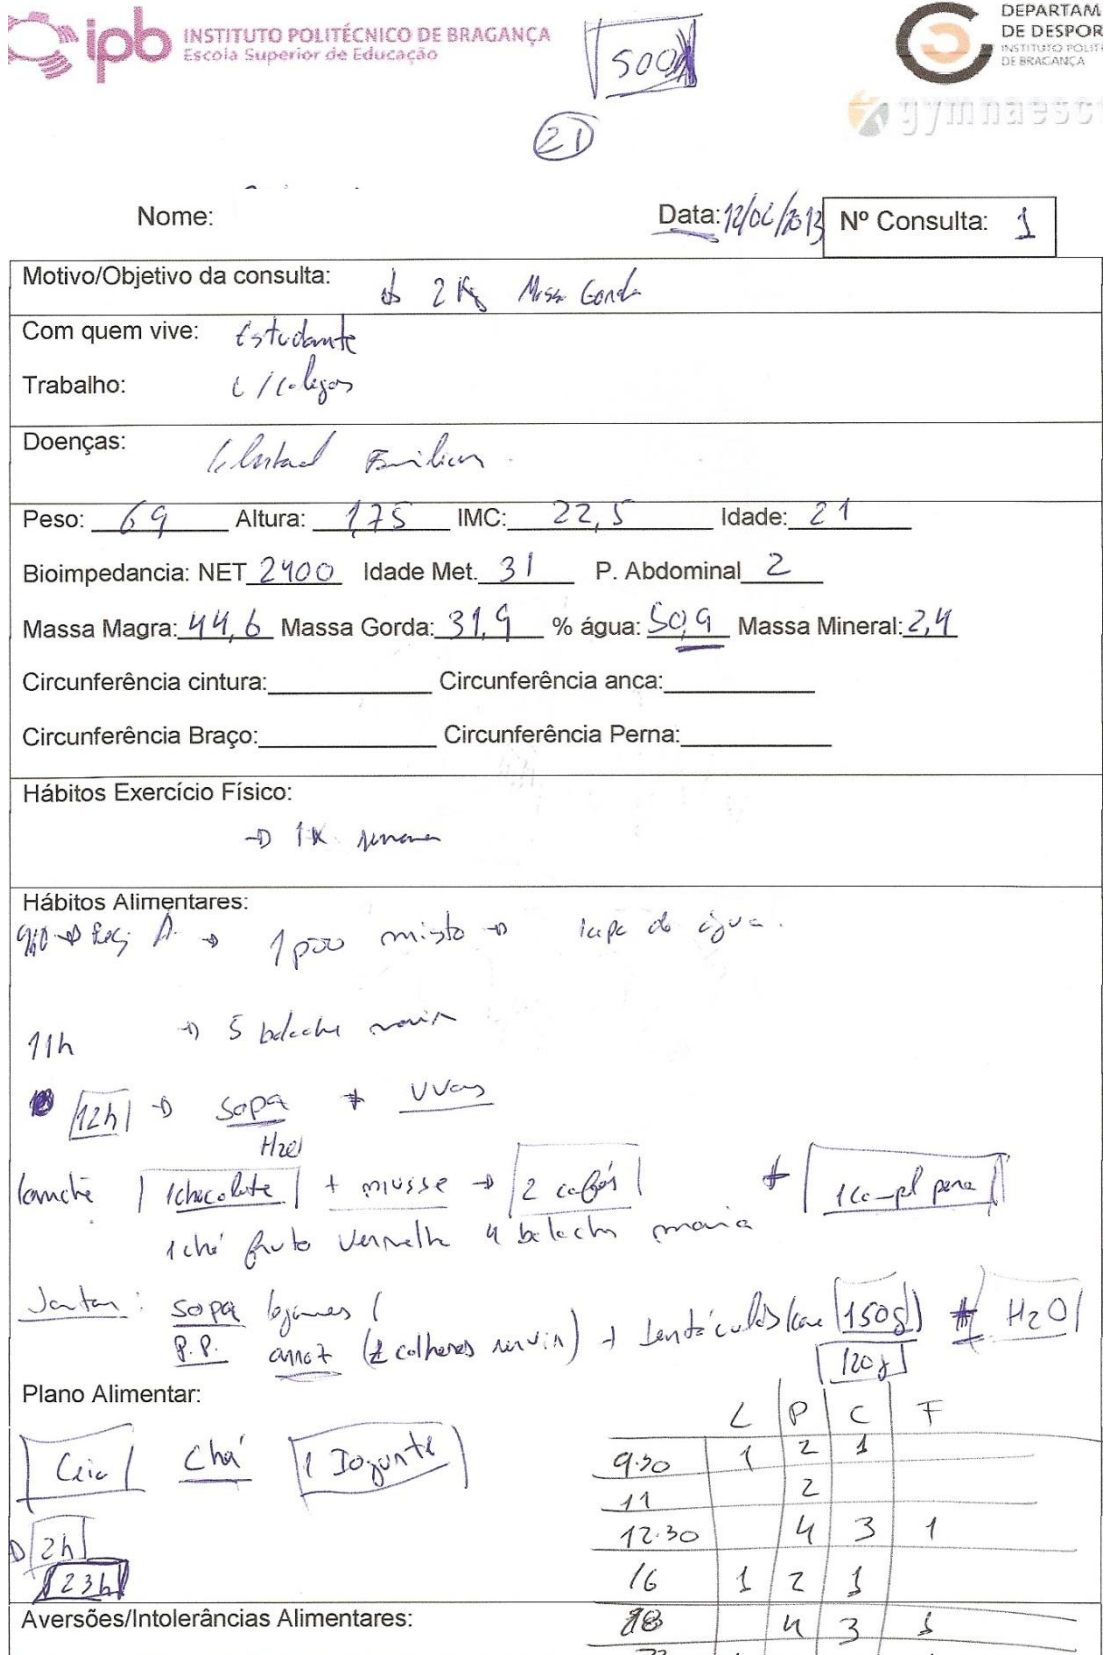 ipb INSTITUTO POLITÉCNICO DE BRAGANÇA
Escola Superior de Educação
500
DEPARTAM
DE DESPOR
INSTITUTO POLIT
DE BRAGANÇA
gymnaesc
21
Nome:
Data: 12/02/2013 Nº Consulta: 1
Motivo/Objetivo da consulta: 2 Kg Massa Gorda
Com quem vive: Estudante
Trabalho: c/colegas
Doenças: Familiar
Peso: 69 Altura: 1,75 IMC: 22,5 Idade: 21
Bioimpedancia: NET 2400 Idade Met. 31 P. Abdominal 2
Massa Magra: 44,6 Massa Gorda: 31,9 % água: 50,9 Massa Mineral: 2,4
Circunferência cintura: Circunferência anca:
Circunferência Braço: Circunferência Perna:
Hábitos Exercício Físico:
→ 1x semana
Hábitos Alimentares:
→ 1 pão misto → de água.
11h → 5 bolacha maria
12h → Sopa + Uvas
H2O
lanche 1 chocolate + musse → 2 cafés + 1 pera
1 chá fruto vermelho 4 bolacha maria
Jantar: sopa legumes
P.P. arroz (2 colheres servir) + 150g + H2O
120g
Plano Alimentar:
L P C F
Ceia Chá 1 Iogurte
9.30 1 2 1
11 2
12.30 4 3 1
2h
23h
16 1 2 1
Aversões/Intolerâncias Alimentares:
18 4 3 1